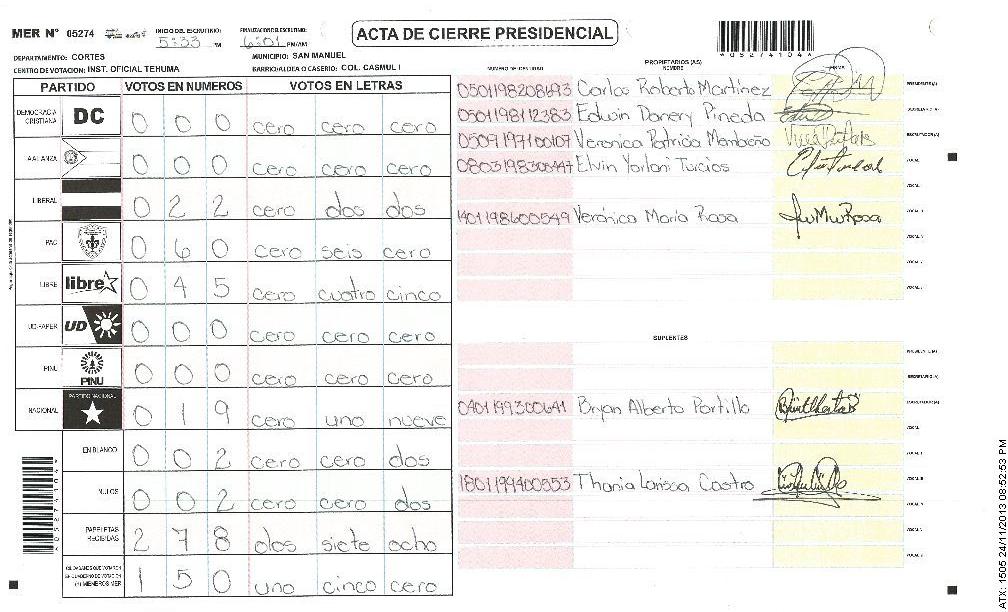 MER Nº 05274 INICIO DEL ESCRUTINIO: 5:33 PM FINALIZACION DEL ESCRUTINIO: 6:01 PM/AM
ACTA DE CIERRE PRESIDENCIAL
DEPARTAMENTO: CORTES MUNICIPIO: SAN MANUEL
CENTRO DE VOTACION: INST. OFICIAL TEHUMA BARRIO/ALDEA O CASERIO: COL. CASMUL I
PARTIDO VOTOS EN NUMEROS VOTOS EN LETRAS
DEMOCRACIA CRISTIANA DC 0 0 0 cero cero cero
ALIANZA 0 0 0 cero cero cero
LIBERAL 0 2 2 cero dos dos
PAC 0 6 0 cero seis cero
LIBRE libre 0 4 5 cero cuatro cinco
UD-FAPER UD 0 0 0 cero cero cero
PINU PINU 0 0 0 cero cero cero
NACIONAL PARTIDO NACIONAL 0 1 9 cero uno nueve
EN BLANCO 0 0 2 cero cero dos
NULOS 0 0 2 cero cero dos
PAPELETAS RECIBIDAS 2 7 8 dos siete ocho
CIUDADANOS QUE VOTARON EN CUADERNO DE VOTACION 1 5 0 uno cinco cero
PROPIETARIOS (AS)
NUMERO DE IDENTIDAD NOMBRE FIRMA
0501198208693 Carlos Roberto Martínez PRESIDENTE(A)
0501198112383 Edwin Danery Pineda SECRETARIO(A)
0509197100107 Veronica Patricia ESCRUTADOR(A)
0803198305447 Elvin Yorloni Turcios VOCAL
1401198600549 Verónica María Rosa
SUPLENTES
PRESIDENTE(A)
SECRETARIO(A)
0401199300641 Bryan Alberto Portillo ESCRUTADOR(A)
1801199400553 Thania Larissa Castro
*05274104*
ATX: 1505 24/11/2013 08:52:53 PM